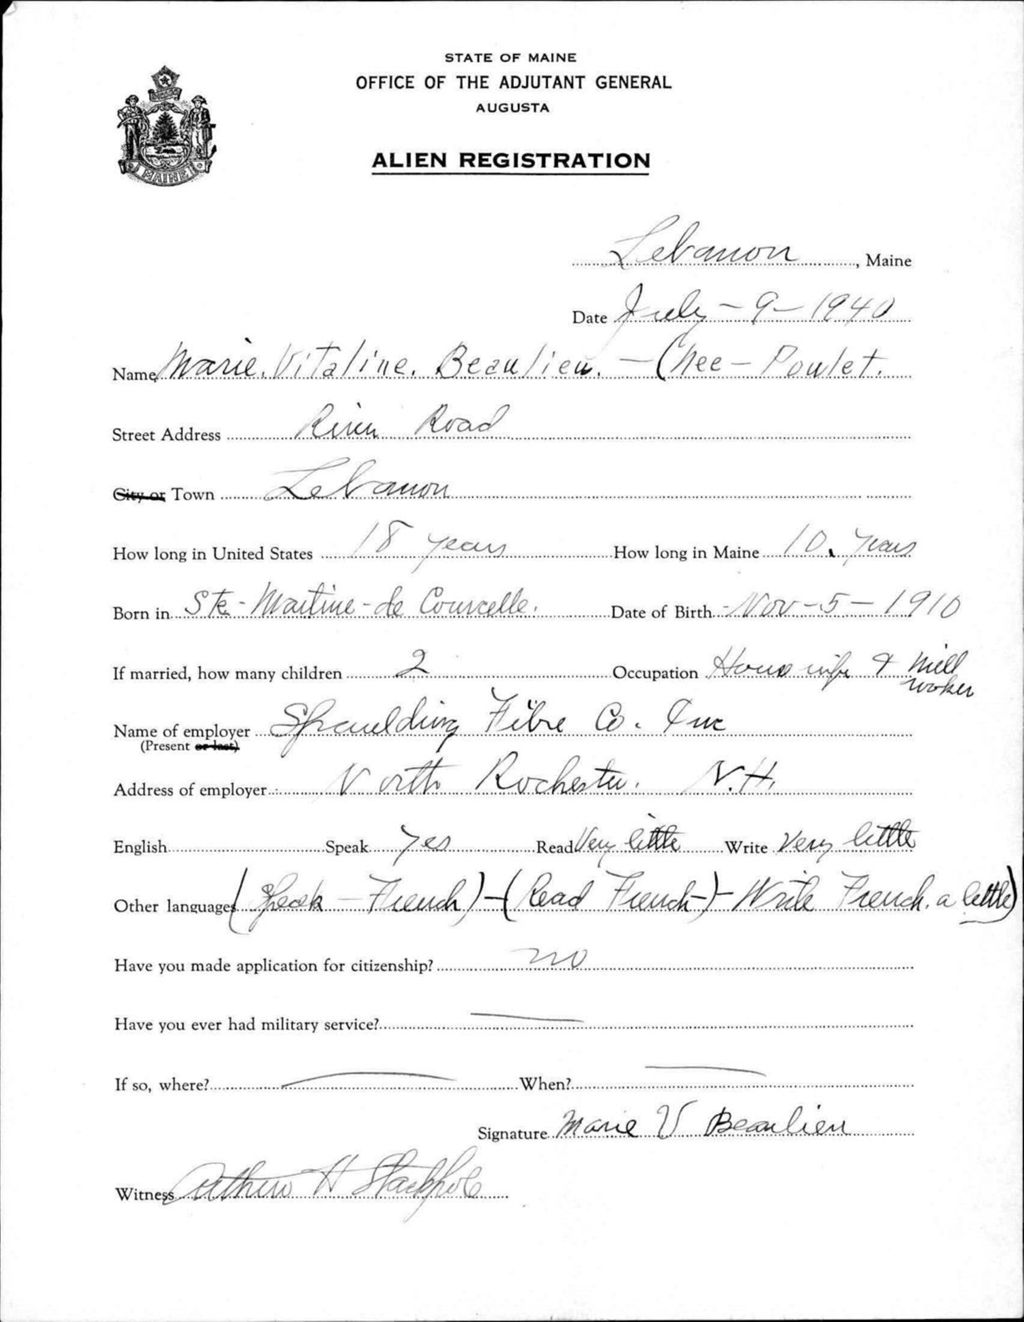 STATE OF MAINE
OFFICE OF THE ADJUTANT GENERAL
AUGUSTA
ALIEN REGISTRATION
MAINE
Lebanon, Maine
Date July - 9 - 1940
Name Marie. Vitaline. Beaulieu. - (Nee - Poulet.
Street Address River Road
City or Town Lebanon
How long in United States 18 years How long in Maine 10. Years
Born in Ste - Martine - de Courcelle. Date of Birth Nov - 5 - 1910
If married, how many children 2 Occupation Housewife & Mill worker
Name of employer Spaulding Fibre Co. Inc
(Present or last)
Address of employer North Rochester. N.H.
English Speak Yes Read Very little Write Very little
Other languages (Speak - French) - (Read French -) - Write French. a little)
Have you made application for citizenship? no
Have you ever had military service?
If so, where? When?
Signature Marie V Beaulieu
Witness Arthur H Stackpole